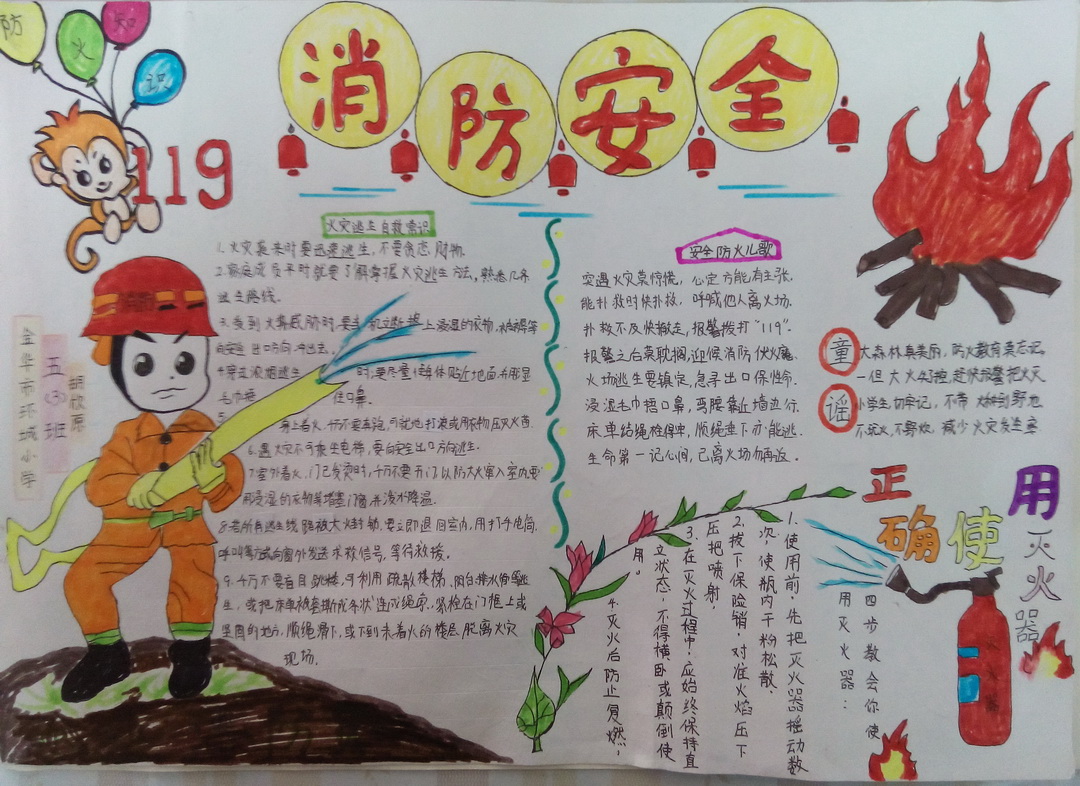 防
火
知
识
消防安全
119
金华市环城小学
五(3)班
胡欣原
火灾逃生自救常识
1.火灾袭来时要迅速逃生,不要贪恋财物.
2.家庭成员平时就要了解掌握火灾逃生方法,熟悉几条
逃生路线。
3.受到火势威胁时,要当机立断披上浸湿的衣物、
向安全出口方向冲出去。
4.穿过浓烟逃生时,要尽量使身体贴近地面,
毛巾捂住口鼻.
5.身上着火,千万不要奔跑,可就地打滚或用衣物压灭火苗
6.遇火灾不可乘坐电梯,要向安全出口方向逃生.
7.室外着火,门已发烫时,千万不要开门以防大火窜入室内,要
用浸湿的衣物等堵塞门窗,并泼水降温.
8.若所有逃生线路被大火封锁,要立即退回室内,用打手电筒、
呼叫等方式向窗外发送求救信号,等待救援。
9.千万不要盲目跳楼,可利用疏散楼梯、阳台、排水管等逃
生,或把床单被套撕成条状连成绳索,紧栓在门框上或
坚固的地方,顺绳滑下,或下到未着火的楼层,脱离火灾
现场.
安全防火儿歌
突遇火灾莫惊慌,心定方能有主张.
能扑救时快扑救,呼喊他人离火场.
扑救不及快撤走,报警拨打“119”.
报警之后莫耽搁,迎候消防伏火魔.
火场逃生要镇定,急寻出口保性命.
浸湿毛巾捂口鼻,弯腰靠近墙边行.
床单结绳栓得牢,顺绳垂下亦能逃.
生命第一记心间,已离火场勿再返。
童谣
大森林真美丽,防火教育莫忘记
一但大火,赶快报警把火灭
小学生切牢记,不带火种到野地
不玩火,不野炊,减少火灾发生率
正确使用灭火器
四步教会你使
用灭火器:
1.使用前,先把灭火器摇动数
次,使瓶内干粉松散.
2.拔下保险销,对准火焰压下
压把喷射.
3.在灭火过程中,应始终保持直
立状态,不得横卧或颠倒使
用。
4.灭火后防止复燃.
灭火器